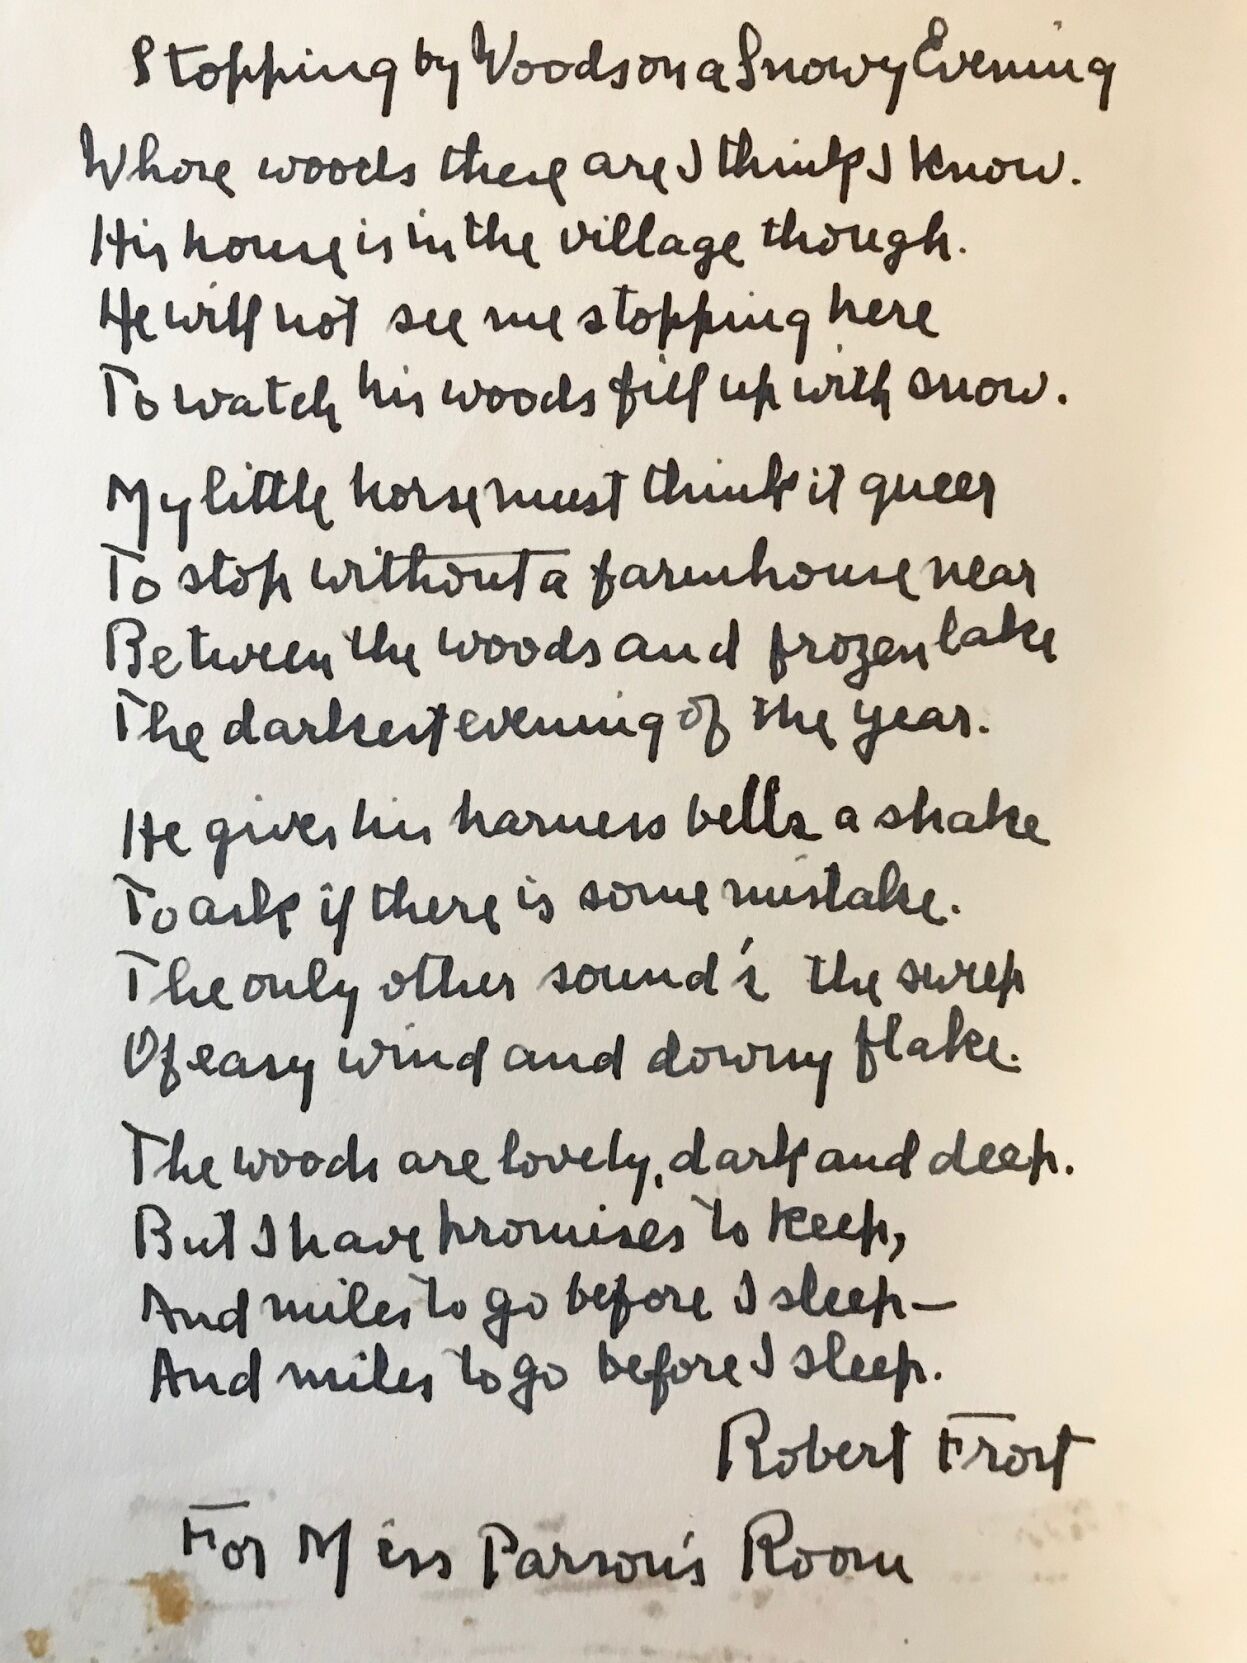 Stopping by Woods on a Snowy Evening
Whose woods these are I think I know.
His house is in the village though.
He will not see me stopping here
To watch his woods fill up with snow.
My little horse must think it queer
To stop without a farmhouse near
Between the woods and frozen lake
The darkest evening of the year.
He gives his harness bells a shake
To ask if there is some mistake.
The only other sound's the sweep
Of easy wind and downy flake.
The woods are lovely, dark and deep.
But I have promises to keep,
And miles to go before I sleep—
And miles to go before I sleep.
Robert Frost
For Miss Parson's Room